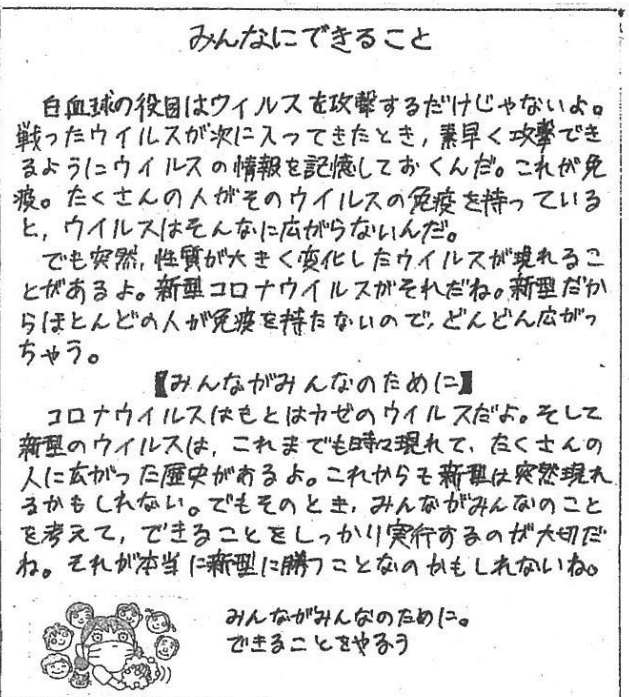 みんなにできること
白血球の役目はウイルスを攻撃するだけじゃないよ。
戦ったウイルスが次に入ってきたとき,素早く攻撃でき
るようにウイルスの情報を記憶しておくんだ。これが免
疫。たくさんの人がそのウイルスの免疫を持っている
と,ウイルスはそんなに広がらないんだ。
でも突然,性質が大きく変化したウイルスが現れるこ
とがあるよ。新型コロナウイルスがそれだね。新型だか
らほとんどの人が免疫を持たないので,どんどん広がっ
ちゃう。
【みんながみんなのために】
コロナウイルスはもとはカゼのウイルスだよ。そして
新型のウイルスは,これまでも時々現れて,たくさんの
人に広がった歴史があるよ。これからも新型は突然現れ
るかもしれない。でもそのとき,みんながみんなのこと
を考えて,できることをしっかり実行するのが大切だ
ね。それが本当に新型に勝つことなのかもしれないね。
みんながみんなのために。
できることをやろう